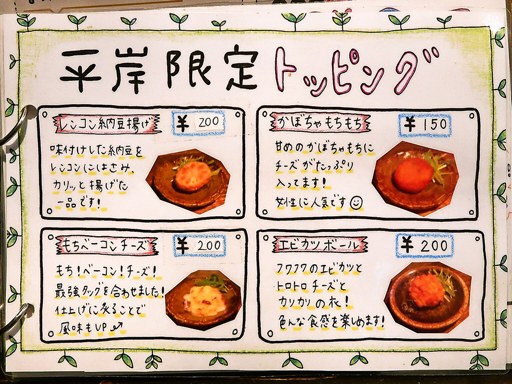 平岸限定トッピング
レンコン納豆揚げ
¥200
味付けした納豆を
レンコンにはさみ、
カリッと揚げた
一品です!
かぼちゃもちもち
¥150
甘めのかぼちゃもちに
チーズがたっぷり
入ってます!
女性に人気です
もちベーコンチーズ
¥200
もち!ベーコン!チーズ!
最強タッグを合わせました!
仕上げに炙ることで
風味もUP
エビカツボール
¥200
フワフワのエビカツと
トロトロチーズと
カリカリの衣!
色んな食感を楽しめます!